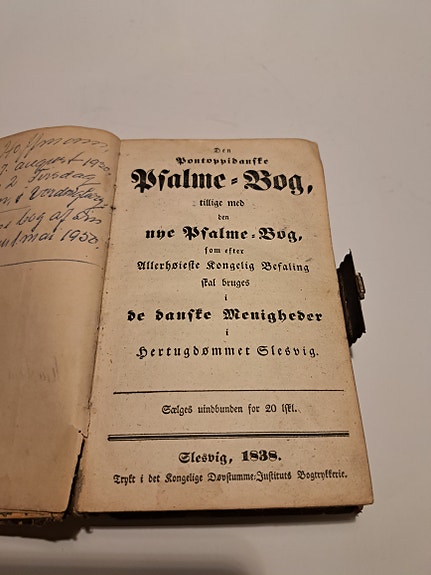 Hoffmann,
august 1920
2 Tirsdag
bog af Sin
mai 1950.
Den
Pontoppidanske
Psalme-Bog,
tillige med
den
nye Psalme-Bog,
som efter
Allerhøieste Kongelig Befaling
skal bruges
i
de danske Menigheder
i
Hertugdømmet Slesvig.
Sælges uindbunden for 20 lßl.
Slesvig, 1838.
Trykt i det Kongelige Døvstumme-Instituts Bogtrykkerie.